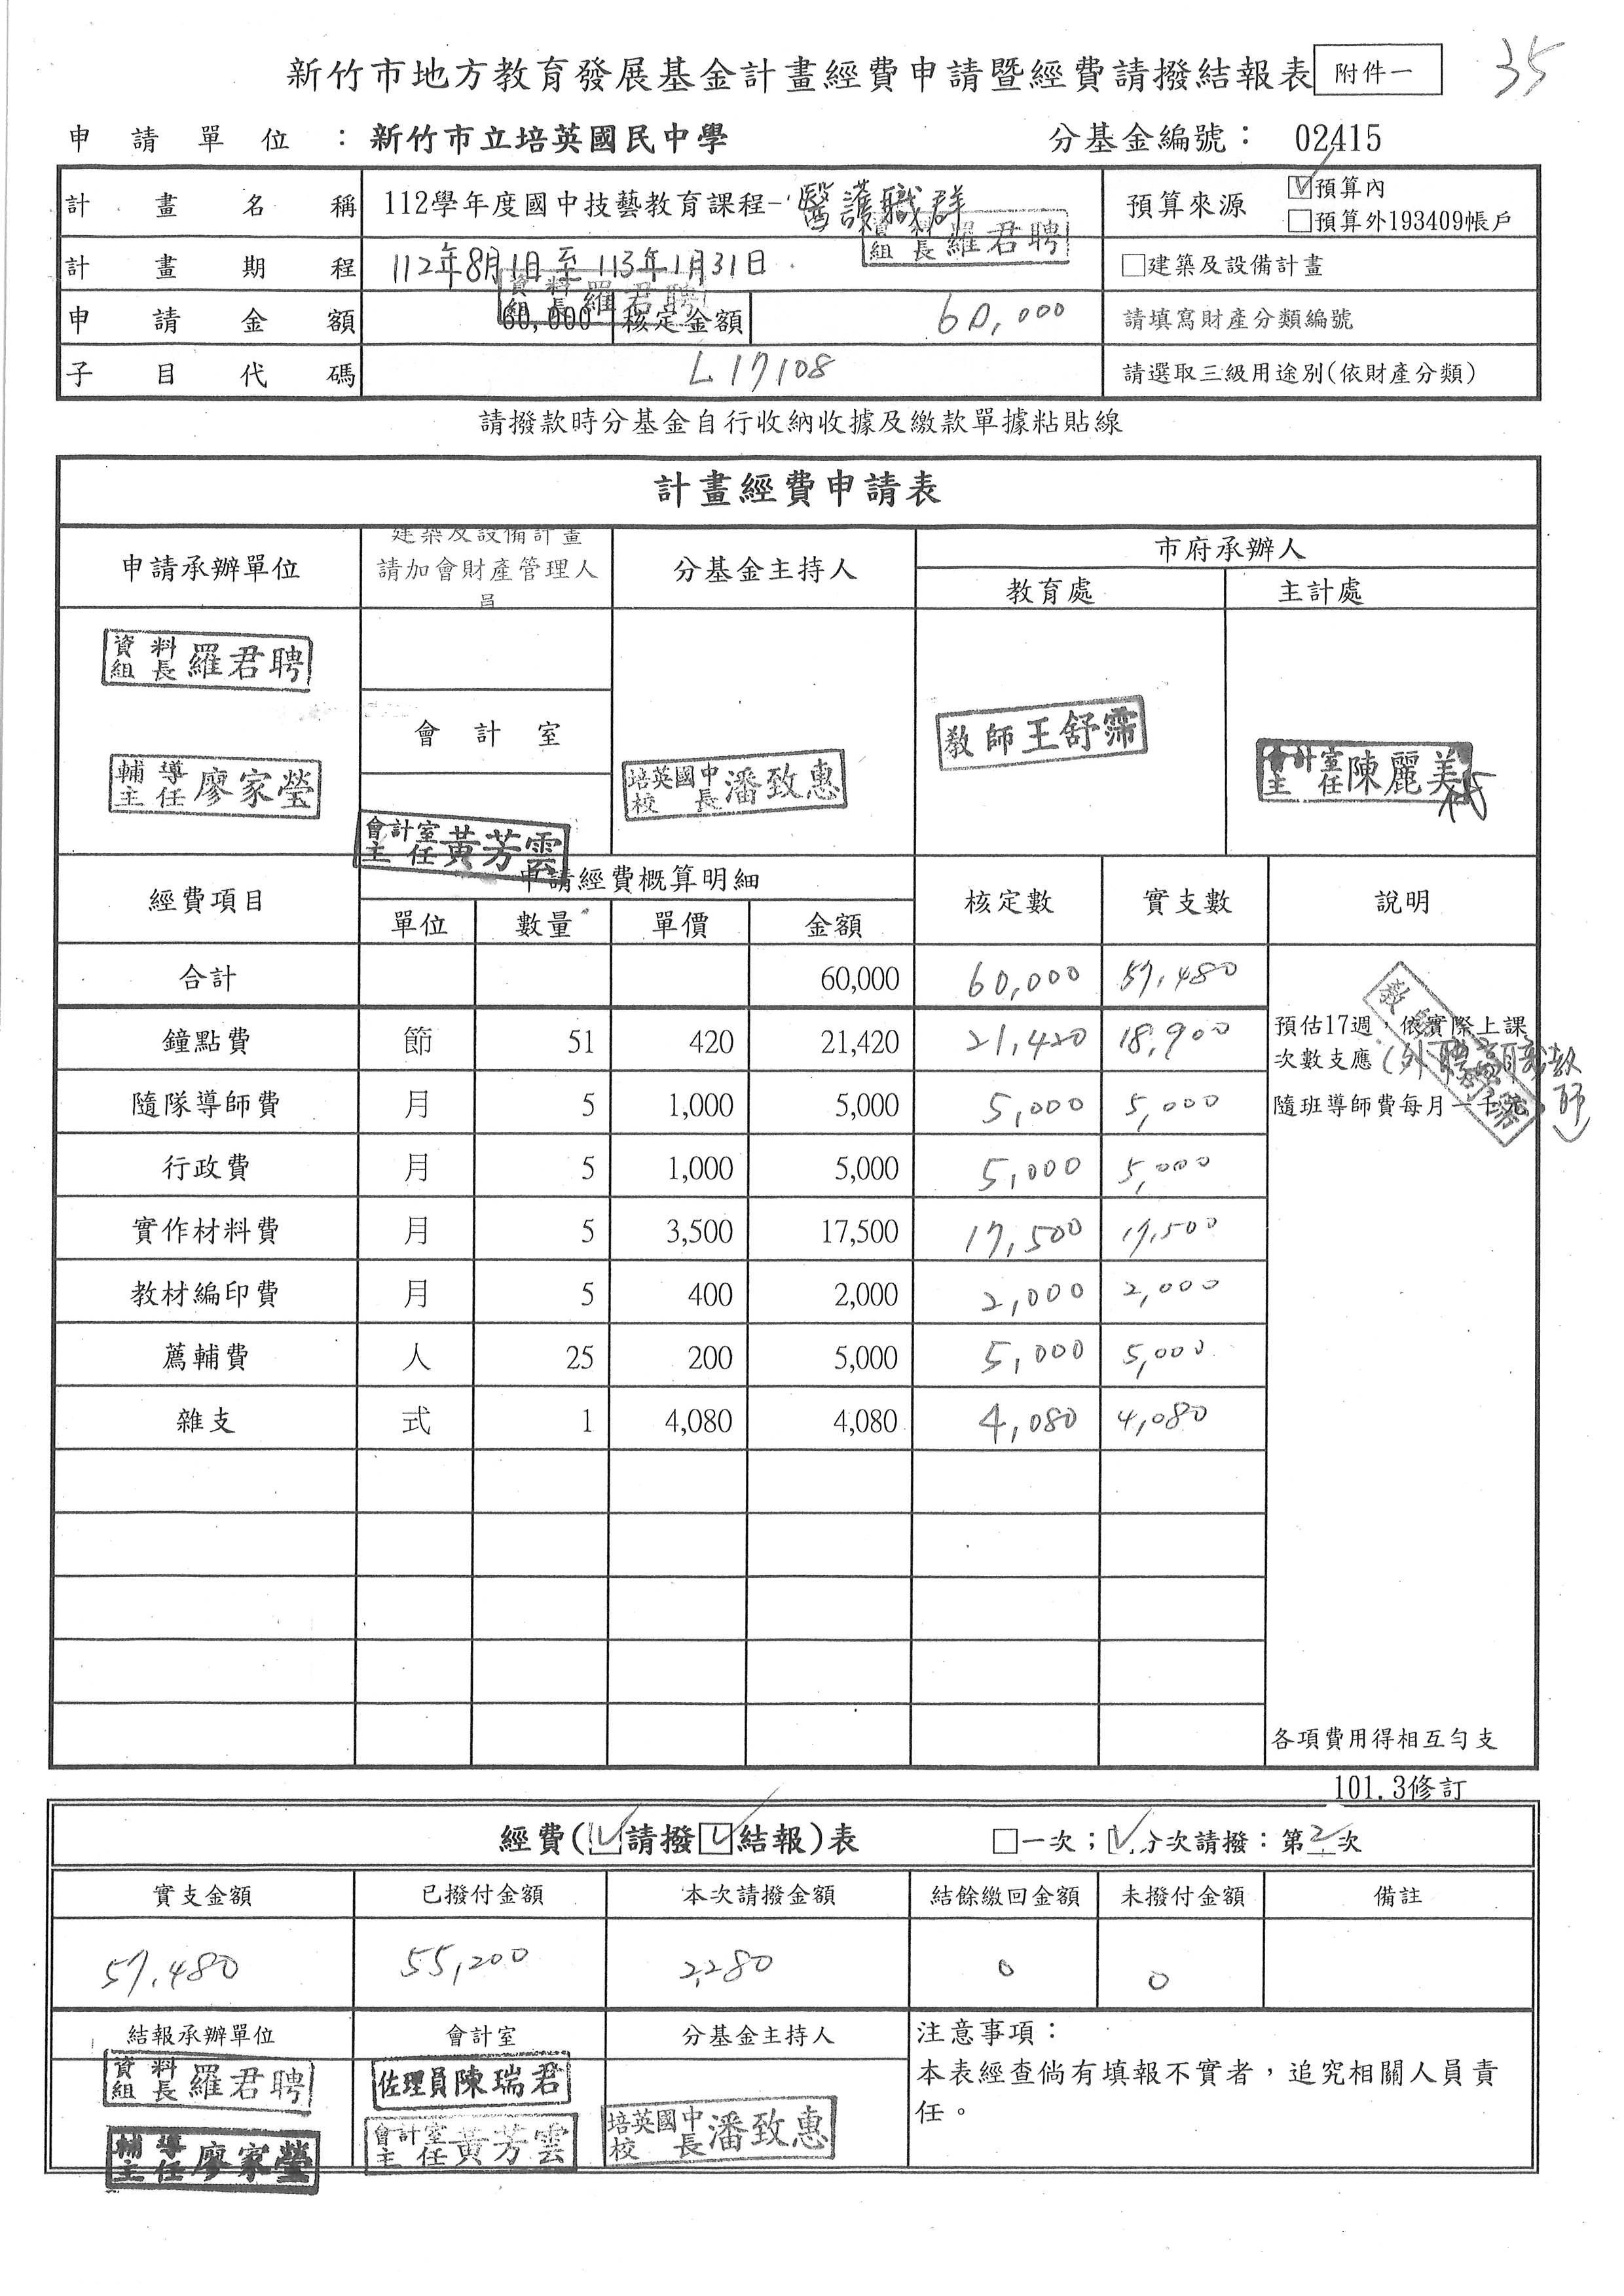 新竹市地方教育發展基金計畫經費申請暨經費請撥結報表 附件一 35
申請單位：新竹市立培英國民中學 分基金編號： 02415
計畫名稱 112學年度國中技藝教育課程-醫護職群 預算來源 ☑預算內
□預算外193409帳戶
資料組長 羅君聘
計畫期程 112年8月1日至113年1月31日 □建築及設備計畫
資料組長 羅君聘
申請金額 60,000 核定金額 60,000 請填寫財產分類編號
子目代碼 L17108 請選取三級用途別(依財產分類)
請撥款時分基金自行收納收據及繳款單據粘貼線
計畫經費申請表
申請承辦單位 建築及設備計畫請加會財產管理人員 分基金主持人 市府承辦人
教育處 主計處
資料組長 羅君聘
會計室
教師 王舒霈
輔導主任 廖家瑩
培英國中校長 潘致惠
會計室主任 陳麗美
會計室主任 黃芳雲
經費項目 申請經費概算明細 核定數 實支數 說明
單位 數量 單價 金額
合計 60,000 60,000 57,480
鐘點費 節 51 420 21,420 21,420 18,900 預估17週，依實際上課次數支應(外聘高職教師)
隨隊導師費 月 5 1,000 5,000 5,000 5,000 隨班導師費每月一千元
行政費 月 5 1,000 5,000 5,000 5,000
實作材料費 月 5 3,500 17,500 17,500 17,500
教材編印費 月 5 400 2,000 2,000 2,000
薦輔費 人 25 200 5,000 5,000 5,000
雜支 式 1 4,080 4,080 4,080 4,080
各項費用得相互勻支
101.3修訂
經費(☑請撥☑結報)表 □一次；☑分次請撥：第2次
實支金額 已撥付金額 本次請撥金額 結餘繳回金額 未撥付金額 備註
57,480 55,200 2,280 0 0
結報承辦單位 會計室 分基金主持人 注意事項：
本表經查倘有填報不實者，追究相關人員責
任。
資料組長 羅君聘 佐理員 陳瑞君
輔導主任 廖家瑩 會計室主任 黃芳雲 培英國中校長 潘致惠